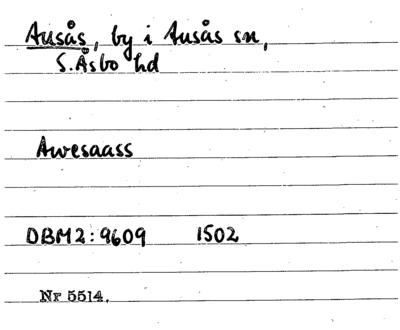 Ausås, by i Ausås sn,
S. Åsbo hd
Awesaass
DBM2:9609 1502
Nr 5514.